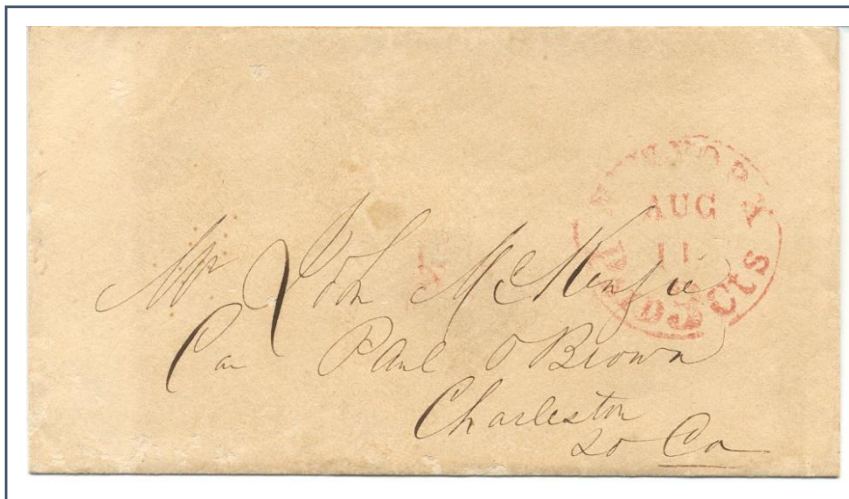 NEW YORK
AUG
11
PAID 3 cts
Mr John McKenzie
Car Paul O Brown
Charleston
So Ca